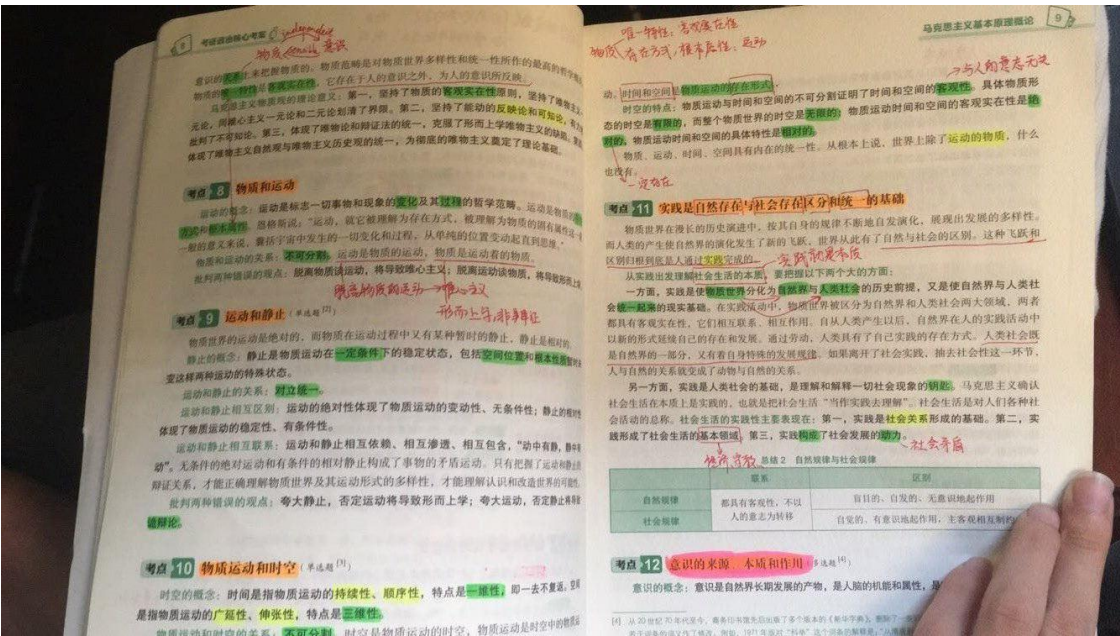 8 考研政治核心考案
independent
物质 意识
意识的关系上来把握物质的。物质范畴是对物质世界多样性和统一性所作的最高的哲学概
物质的唯一特性是客观实在性，它存在于人的意识之外，为人的意识所反映。
马克思主义物质观的理论意义：第一，坚持了物质的客观实在性原则，坚持了唯物主义一
元论，同唯心主义一元论和二元论划清了界限。第二，坚持了能动的反映论和可知论，有力
批判了不可知论。第三，体现了唯物论和辩证法的统一，克服了形而上学唯物主义的缺陷。第四，
体现了唯物主义自然观与唯物主义历史观的统一，为彻底的唯物主义奠定了理论基础。
考点 8 物质和运动
运动的概念：运动是标志一切事物和现象的变化及其过程的哲学范畴。运动是物质的
方式和根本属性。恩格斯说：“运动，就它被理解为存在方式，被理解为物质的固有属性这一
一般的意义来说，囊括宇宙中发生的一切变化和过程，从单纯的位置变动起直到思维。”
物质和运动的关系：不可分割。运动是物质的运动，物质是运动着的物质。
批判两种错误的观点：脱离物质谈运动，将导致唯心主义；脱离运动谈物质，将导致形而上
唯心主义
考点 9 运动和静止（单选题[2]）
物质世界的运动是绝对的，而物质在运动过程中又有某种暂时的静止，静止是相对的。
静止的概念：静止是物质运动在一定条件下的稳定状态，包括空间位置和根本性质暂时未
变这样两种运动的特殊状态。
运动和静止的关系：对立统一。
运动和静止相互区别：运动的绝对性体现了物质运动的变动性、无条件性；静止的相对性
体现了物质运动的稳定性、有条件性。
运动和静止相互联系：运动和静止相互依赖、相互渗透、相互包含，“动中有静，静中有
动”。无条件的绝对运动和有条件的相对静止构成了事物的矛盾运动。只有把握了运动和静止的
辩证关系，才能正确理解物质世界及其运动形式的多样性，才能理解认识和改造世界的可能性。
批判两种错误的观点：夸大静止，否定运动将导致形而上学；夸大运动，否定静止将导致
诡辩论。
考点 10 物质运动和时空（单选题[3]）
时空的概念：时间是指物质运动的持续性、顺序性，特点是一维性，即一去不复返。空间
是指物质运动的广延性、伸张性，特点是三维性。
物质运动和时空的关系：不可分割。时空是物质运动的时空，物质运动是时空中的物质运
马克思主义基本原理概论 9
唯一特性：客观实在性
物质 存在方式，根本属性：运动
与人的意志无关
动。时间和空间是物质运动的存在形式。
时空的特点：物质运动与时间和空间的不可分割证明了时间和空间的客观性。具体物质形
态的时空是有限的，而整个物质世界的时空是无限的；物质运动时间和空间的客观实在性是绝
对的，物质运动时间和空间的具体特性是相对的。
物质、运动、时间、空间具有内在的统一性。从根本上说，世界上除了运动的物质，什么
也没有。
一定存在
考点 11 实践是自然存在与社会存在区分和统一的基础
物质世界在漫长的历史演进中，按其自身的规律不断地自发演化，展现出发展的多样性。
而人类的产生使自然界的演化发生了新的飞跃，世界从此有了自然与社会的区别。这种飞跃和
区别归根到底是人通过实践完成的。
从实践出发理解社会生活的本质，要把握以下两个大的方面：
一方面，实践是使物质世界分化为自然界与人类社会的历史前提，又是使自然界与人类社
会统一起来的现实基础。在实践活动中，物质世界被区分为自然界和人类社会两大领域，两者
都具有客观实在性，它们相互联系、相互作用。自从人类产生以后，自然界在人的实践活动中
以新的形式延续自己的存在和发展。通过劳动，人类具有了自己实践的存在方式。人类社会既
是自然界的一部分，又有着自身特殊的发展规律。如果离开了社会实践，抽去社会性这一环节，
人与自然的关系就变成了动物与自然的关系。
另一方面，实践是人类社会的基础，是理解和解释一切社会现象的钥匙。马克思主义确认
社会生活在本质上是实践的，也就是把社会生活“当作实践去理解”。社会生活是对人们各种社
会活动的总称。社会生活的实践性主要表现在：第一，实践是社会关系形成的基础。第二，实
践形成了社会生活的基本领域。第三，实践构成了社会发展的动力。
社会矛盾
总结2 自然规律与社会规律
联系 区别
自然规律 都具有客观性，不以人的意志为转移 盲目的、自发的、无意识地起作用
社会规律 自觉的、有意识地起作用，主客观相互制约
考点 12 意识的来源、本质和作用（多选题[4]）
意识的概念：意识是自然界长期发展的产物，是人脑的机能和属性，是